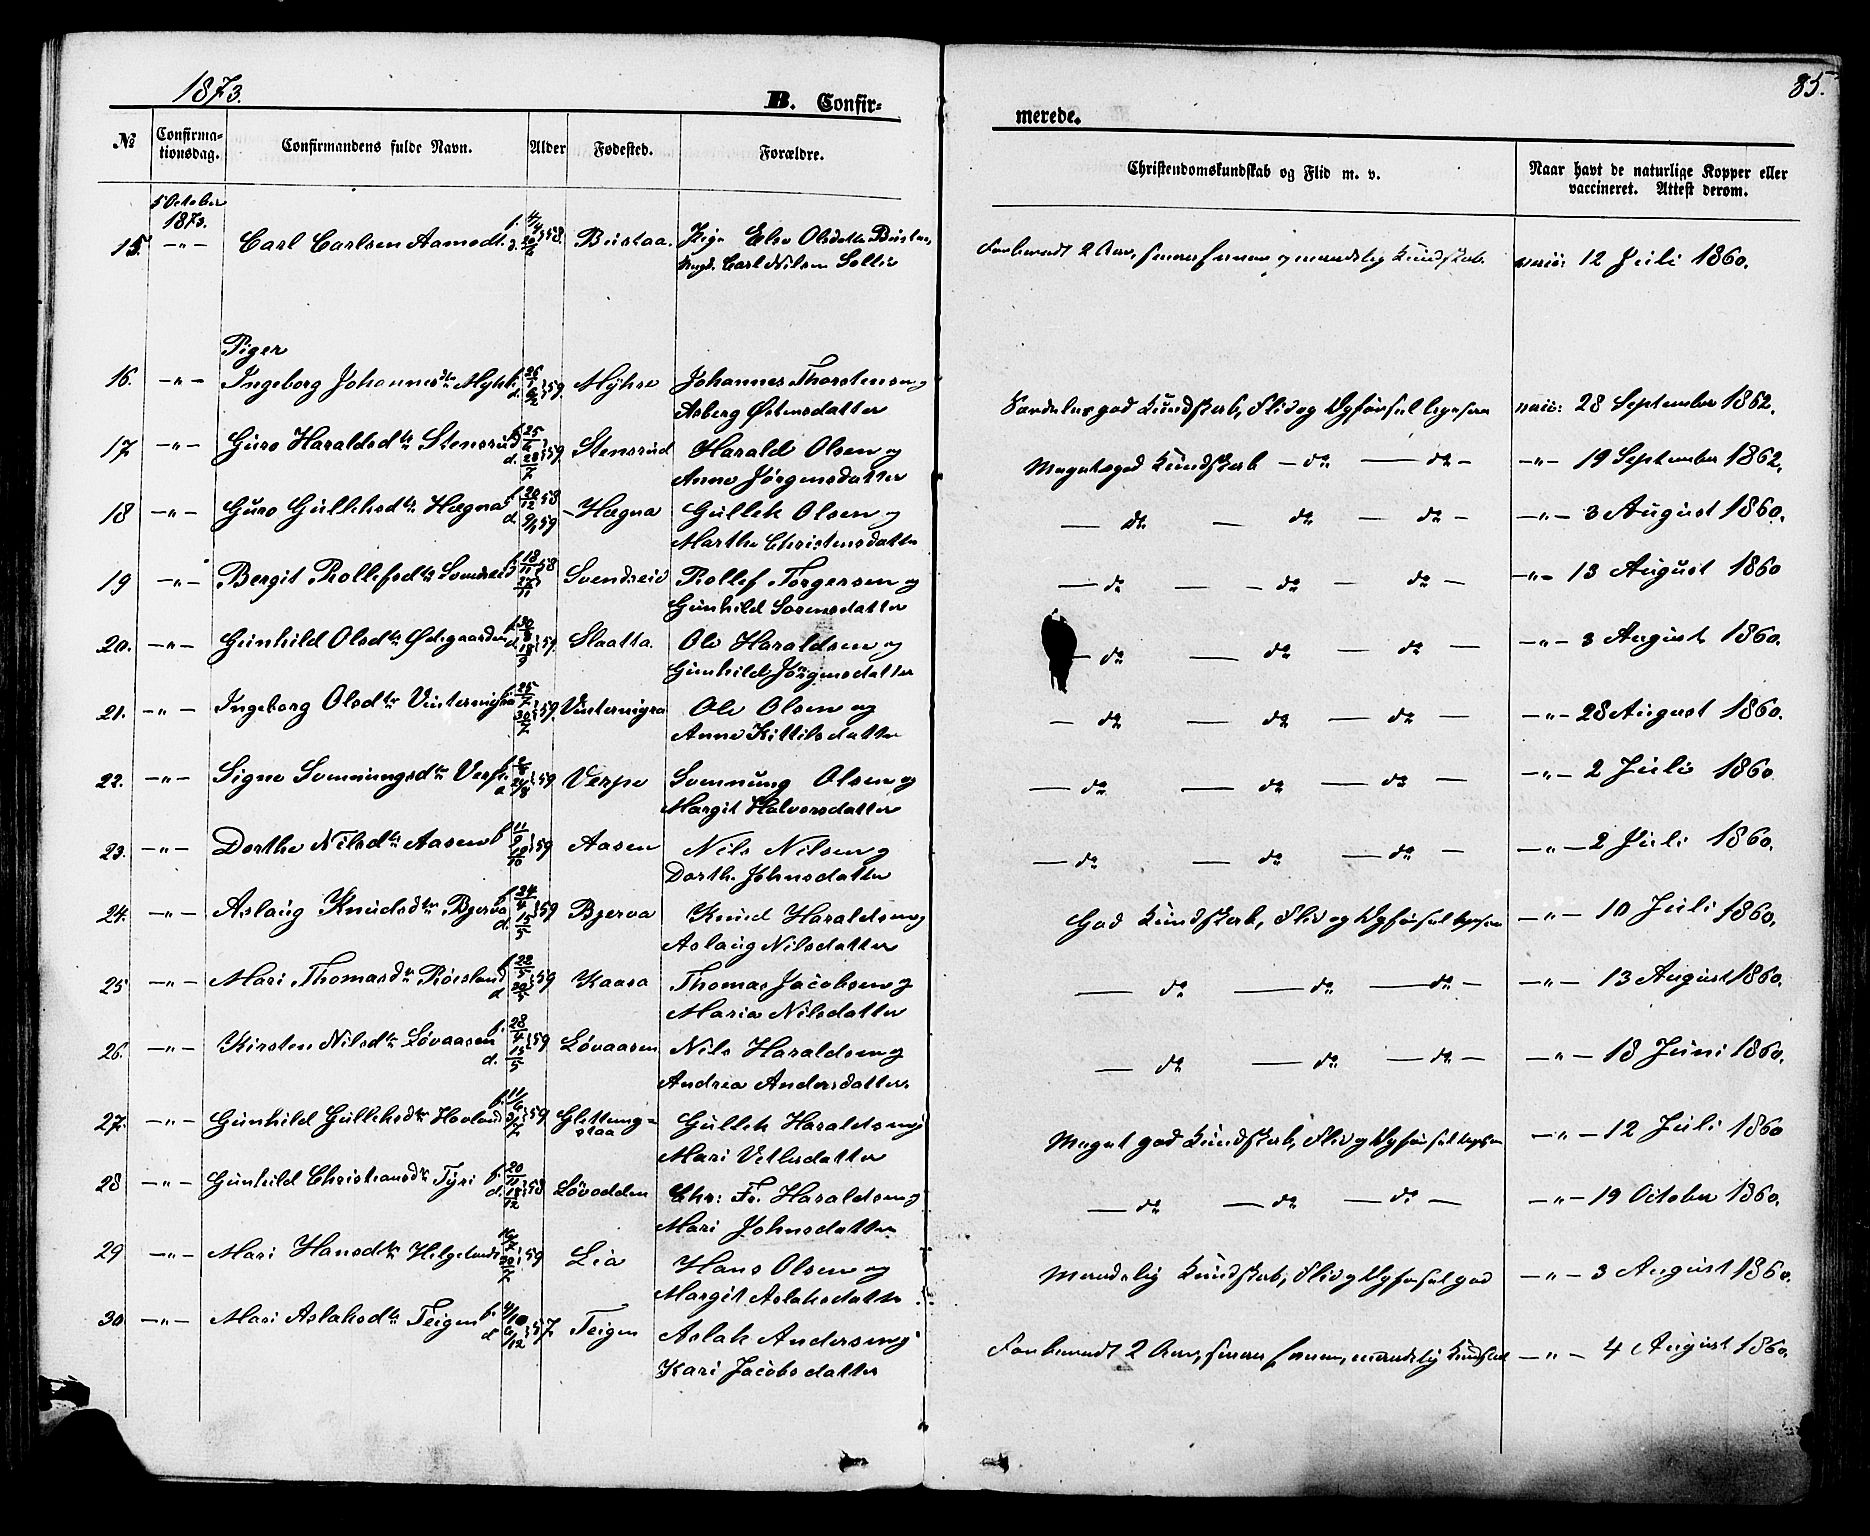 1873.
85.
B. Confir-
merede.
№ Confirma-tionsdag. Confirmandens fulde Navn. Alder Fødested. Forældre. Christendomskundskab og Flid m. v. Naar havt de naturlige Kopper eller vaccineret. Attest derom.
5 October
1873.
15. -"- Carl Carlsen Aamodt f. 4/4 58 Bustaa. Pige Else Olsdatter
Carl Nilsen Sollie Forberedt 2 Aar, maadelig Kundskab vacc: 12 Juli 1860.
Piger
16. -"- Ingeborg Johannesdtr Myhre f. 26/1 59 Myhre Johannes Thorstensen og
Asberg Østensdatter Særdeles god Kundskab, Flid og Opførsel ligesaa vacc: 28 September 1862.
17 -"- Guro Haraldsdtr Stensrud f. 25/6 d. 28/7 59 Stensrud Harald Olsen og
Anne Jørgensdatter Meget god Kundskab - do - do - -"- 19 September 1862.
18 -"- Guro Gulliksdtr Hægna f. 20/12 58 d. 9/1 59 Hægna Gullik Olsen og
Marthe Christensdatter - do - do - do - -"- 3 August 1860.
19 -"- Bergit Rollefsdtr Svendseid f. 18/11 58 Svendseid Rollef Torgersen og
Gunhild Sørensdatter - do - do - do - -"- 13 August 1860
20. -"- Gunhild Olsdtr Ødegaarden 59. Slaatta. Ole Haraldsen og
Gunhild Jørgensdatter - do - do - do - -"- 3 August 1860.
21. -"- Ingeborg Olsdtr Vintermyra f. 25/7 30/7 59. Vintermyra Ole Olsen og
Anne Kittilsdatter - do - do - do - -"- 28 August 1860.
22. -"- Signe Svennungsdtr Verpe 59 Verpe Svennung Olsen og
Margit Halvorsdatter - do - do - do - -"- 2 Juli 1860
23. -"- Dorthe Nilsdtr Aasen f. 11/9 59 Aasen Nils Nilsen og
Dorthe Johnsdatter - do - do - do - -"- 2 Juli 1860.
24. -"- Aslaug Knudsdtr Bjerva f. 24/4 d. 15/5 59 Bjerva Knud Haraldsen og
Aslaug Nilsdatter God Kundskab, Flid og Opførsel ligesaa -"- 10 Juli 1860.
25 -"- Mari Thomasdtr Røisland 59 Kaasa Thomas Jacobsen og
Maria Nilsdatter - do - do - do - -"- 13 August 1860.
26. -"- Kirsten Nilsdtr Løvaasen f. 28/4 d. 15/5 59 Løvaasen Nils Haraldsen og
Andrea Andersdatter. - do - do - do - -"- 18 Juni 1860.
27. -"- Gunhild Gulliksdtr Hovland f. 11/6 59 Glettung-
staa Gullik Haraldsen og
Mari Vetlesdatter Meget god Kundskab, Flid og Opførsel ligesaa -"- 12 Juli 1860
28 -"- Gunhild Christiansdtr Tyri f. 20/11 d. 18/12 58 Løvodden Chr: Fr. Haraldsen og
Mari Johnsdatter - do - do - do - -"- 19 October 1860.
29 -"- Mari Hansdtr Helgeland 59 Lia Hans Olsen og
Margit Aslaksdatter Maadelig Kundskab, Flid og Opførsel god -"- 3 August 1860.
30 -"- Mari Aslaksdtr Teigen f. 4/10 57 Teigen Aslak Andersen og
Kari Jacobsdatter Forberedt 2 Aar, maadelig Kundskab -"- 4 August 1860.